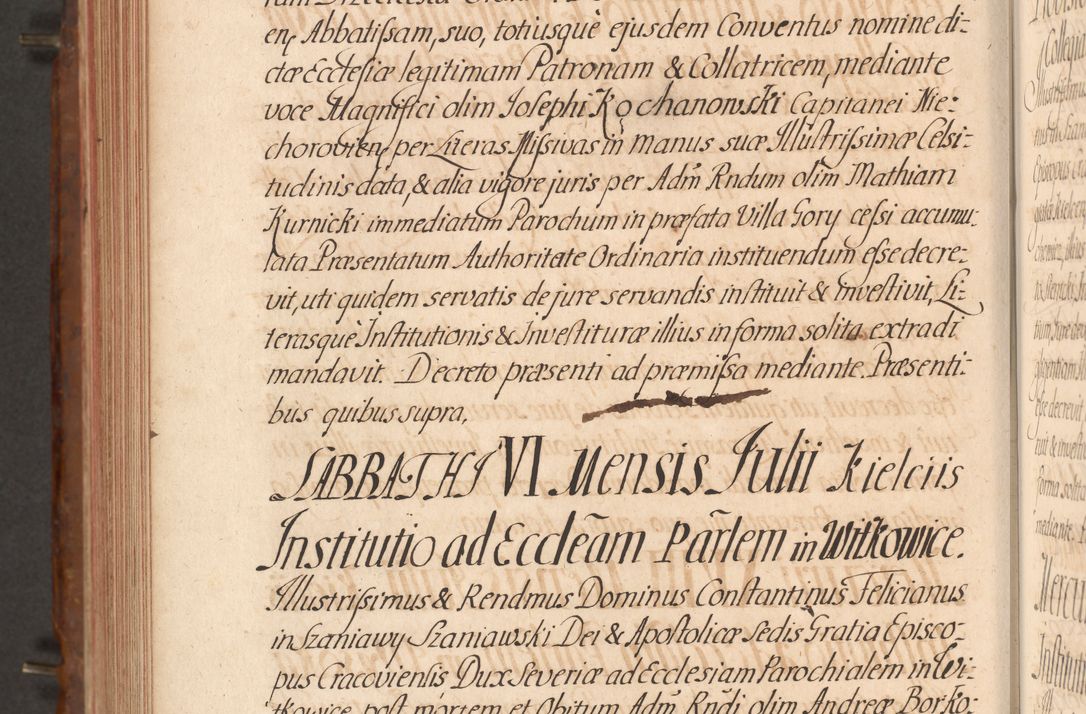 enς Abbatiſsam, suo, totiusque ejusdem Conventus nomine di-
ctæ Ecclesiæ legitimam Patronam & Collatricem, mediante
voce Magnifici olim Josephi Kochanowski Capitanei Nie:
chorovienς per Literas Miſsivas in manus suæ Illustriſsimæ Celsi:
tudinis data, & alia vigore juris per Adm̃ Rndum olim Mathiam
Kurnicki immediatum Parochum in præfata Villa Gory ceſsi accumu:
lata Præsentatum Authoritate Ordinaria instituendum eſse decre:
vit, uti quidem servatis de jure servandis instituit & investivit, Li:
terasquè Institutionis & Investituræ illius in forma solita extradi
mandavit. Decreto præsenti ad præmiſsa mediante. Præsenti:
bus quibus supra.
SABBATHI VI Mensis Julii Kielciis
Institutio ad Eccleãm Parlẽm in Witkowice.
Illustriſsimus & Rendmus Dominus Constantinus Felicianus
in Szaniawy Szaniawski Dei & Apostolicæ Sedis Gratia Episco-
pus Cracoviensis Dux Severiæ ad Ecclesiam Parochialem in Wi-
tkowice, post mortem et Obitum Adm̃ Rndi olim Andreæ Borko: